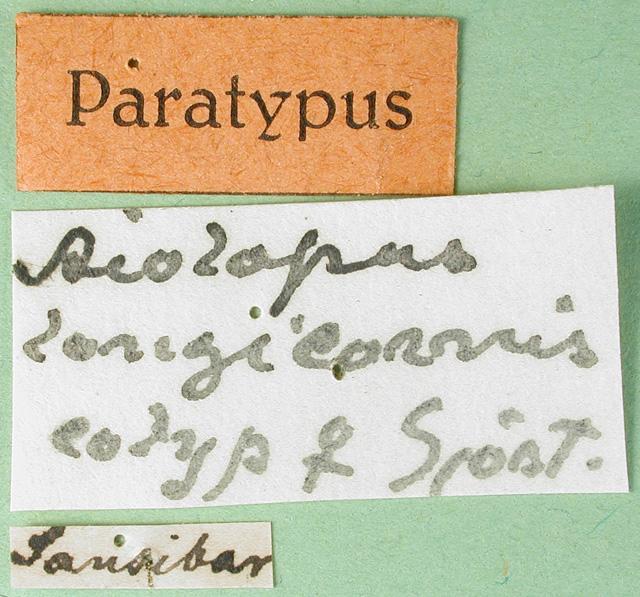 Paratypus
Aiolopus
longicornis
cotyp ♀ Sjöst.
Sansibar